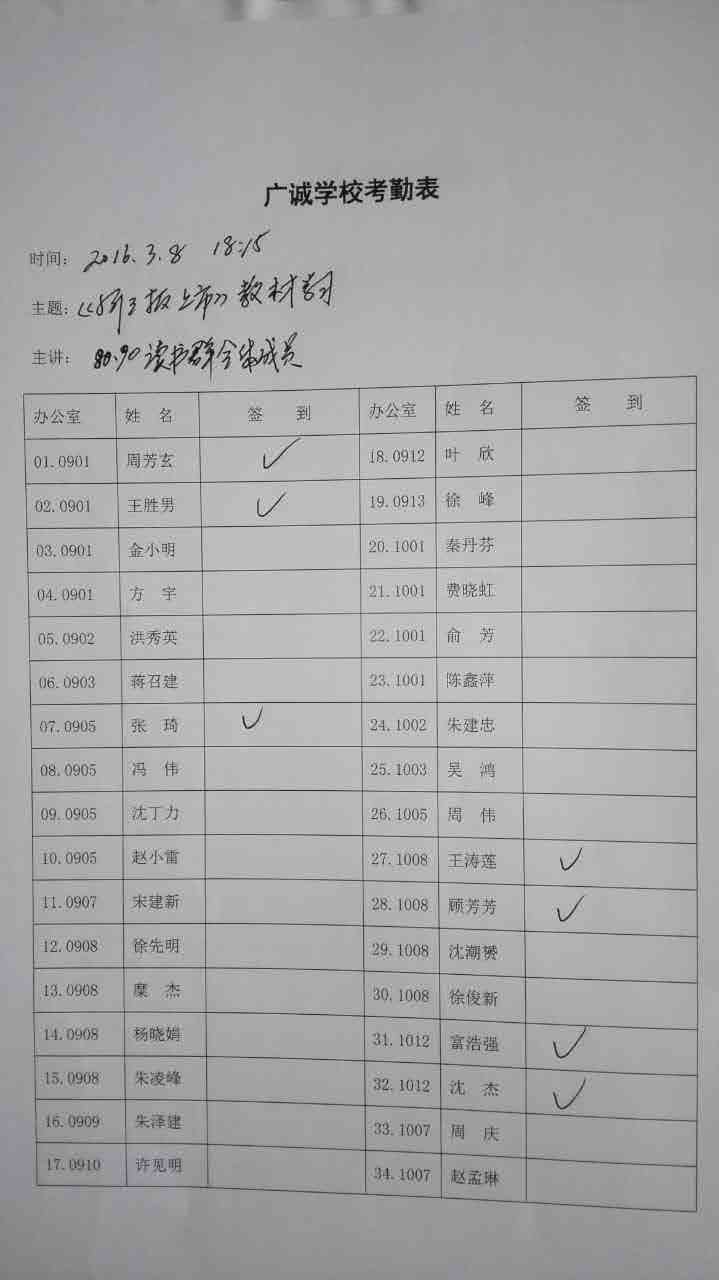 广诚学校考勤表
时间: 2016.3.8 18:15
主题:《新三板上市》教材学习
主讲: 80.90读书群全体成员
办公室 姓 名 签 到 办公室 姓 名 签 到
01.0901 周芳玄 ✓ 18.0912 叶 欣
02.0901 王胜男 ✓ 19.0913 徐 峰
03.0901 金小明 20.1001 秦丹芬
04.0901 方 宇 21.1001 费晓虹
05.0902 洪秀英 22.1001 俞 芳
06.0903 蒋召建 23.1001 陈鑫萍
07.0905 张 琦 ✓ 24.1002 朱建忠
08.0905 冯 伟 25.1003 吴 鸿
09.0905 沈丁力 26.1005 周 伟
10.0905 赵小雷 27.1008 王涛莲 ✓
11.0907 宋建新 28.1008 顾芳芳 ✓
12.0908 徐先明 29.1008 沈潮赟
13.0908 糜 杰 30.1008 徐俊新
14.0908 杨晓娟 31.1012 富浩强 ✓
15.0908 朱凌峰 32.1012 沈 杰 ✓
16.0909 朱泽建 33.1007 周 庆
17.0910 许见明 34.1007 赵孟琳